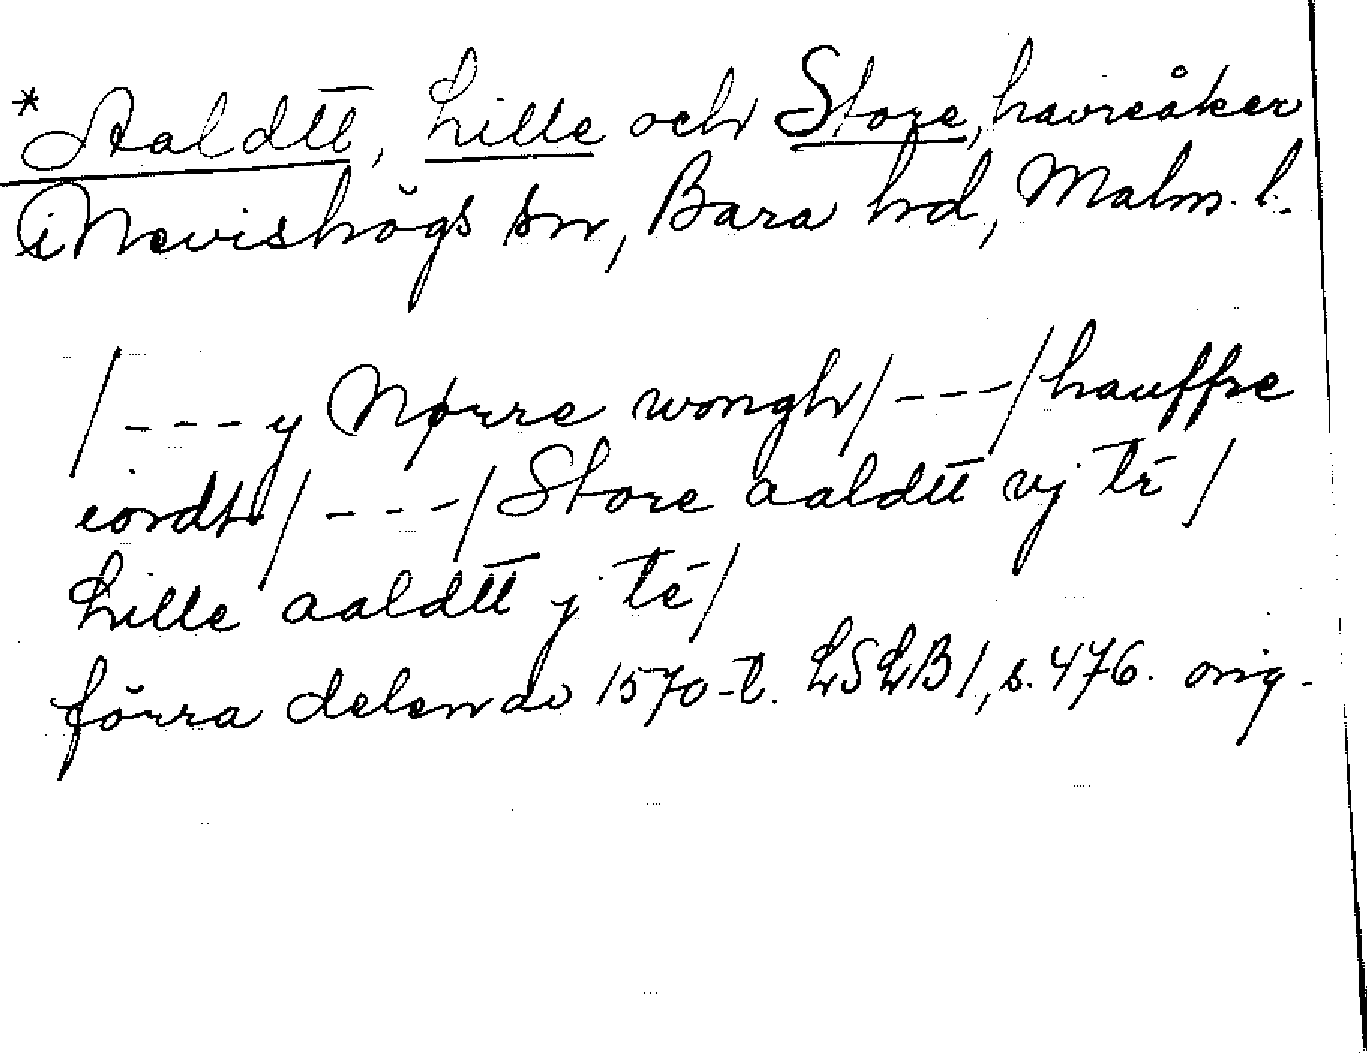 *Aaldtt, Lille och Store, havreåker
i Nevishögs sn, Bara hd, Malm. l.
/---y Nørre wongh/---/hauffre
iordt/---/Store aaldtt vj tr̄/
Lille aaldtt j tē/
förra delen av 1570-t. LSLB1, s. 476. orig.